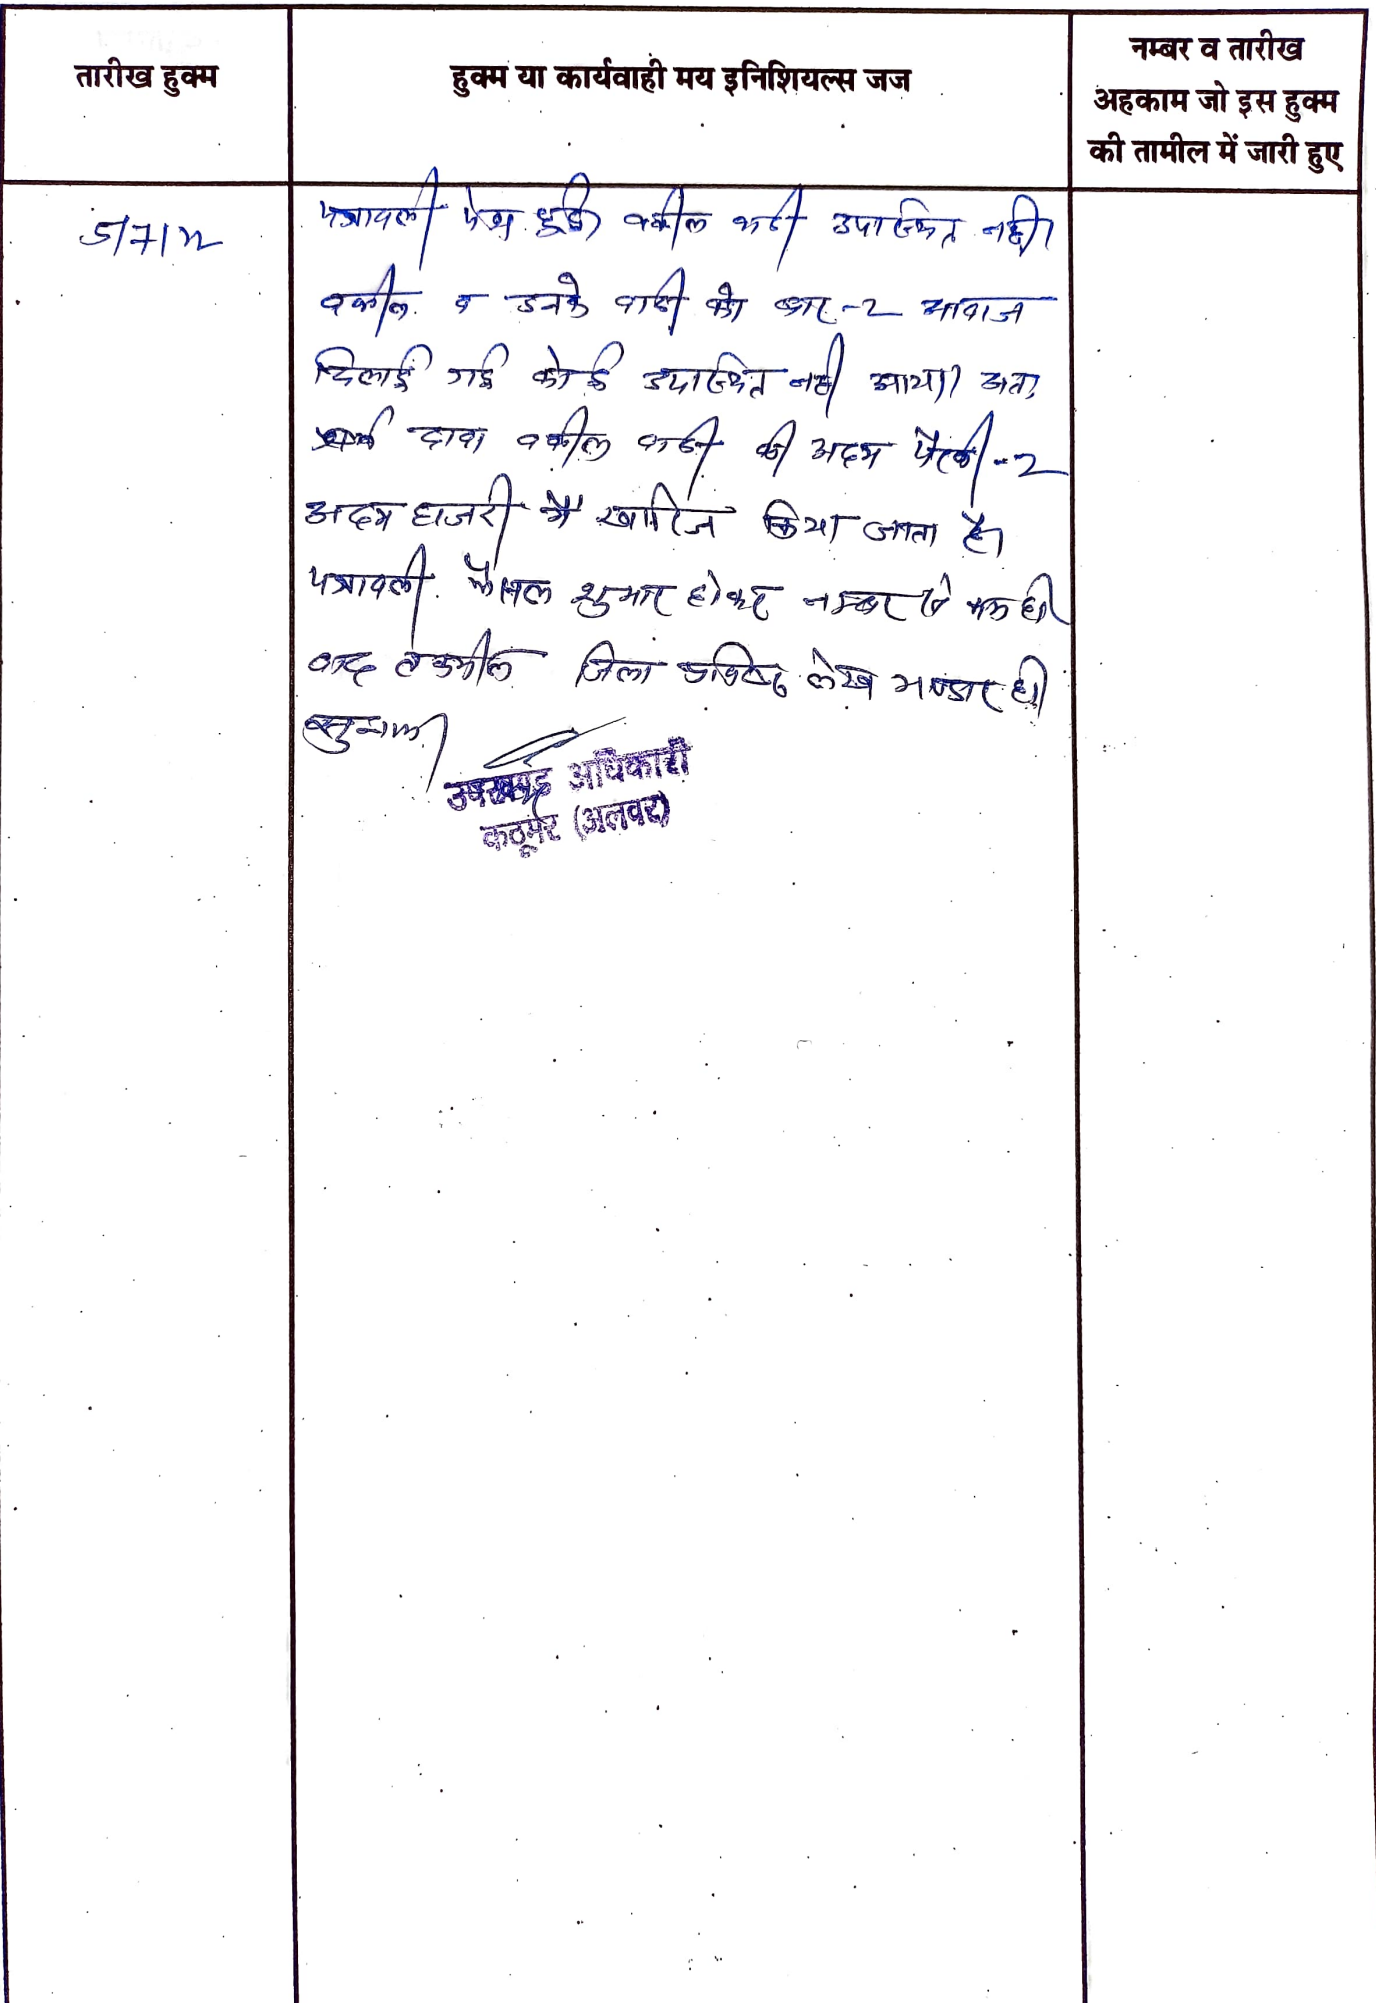 तारीख हुक्म
हुक्म या कार्यवाही मय इनिशियल्स जज
नम्बर व तारीख
अहकाम जो इस हुक्म
की तामील में जारी हुए
5/7/22
पत्रावली पेश हुई। वकील वादी उपस्थित नही।
वकील व उनके वादी को बार-2 आवाज
दिलाई गई कोई उपस्थित नही आया। अतः
दावा वकील वादी की अदम पैरवी -2
अदम हाजरी में खारिज किया जाता है।
पत्रावली फैसल शुमार होकर नम्बर से कम हो
बाद तकमील जिला अभिलेख लेख भण्डार हो
उपखण्ड अधिकारी
कठूमर (अलवर)